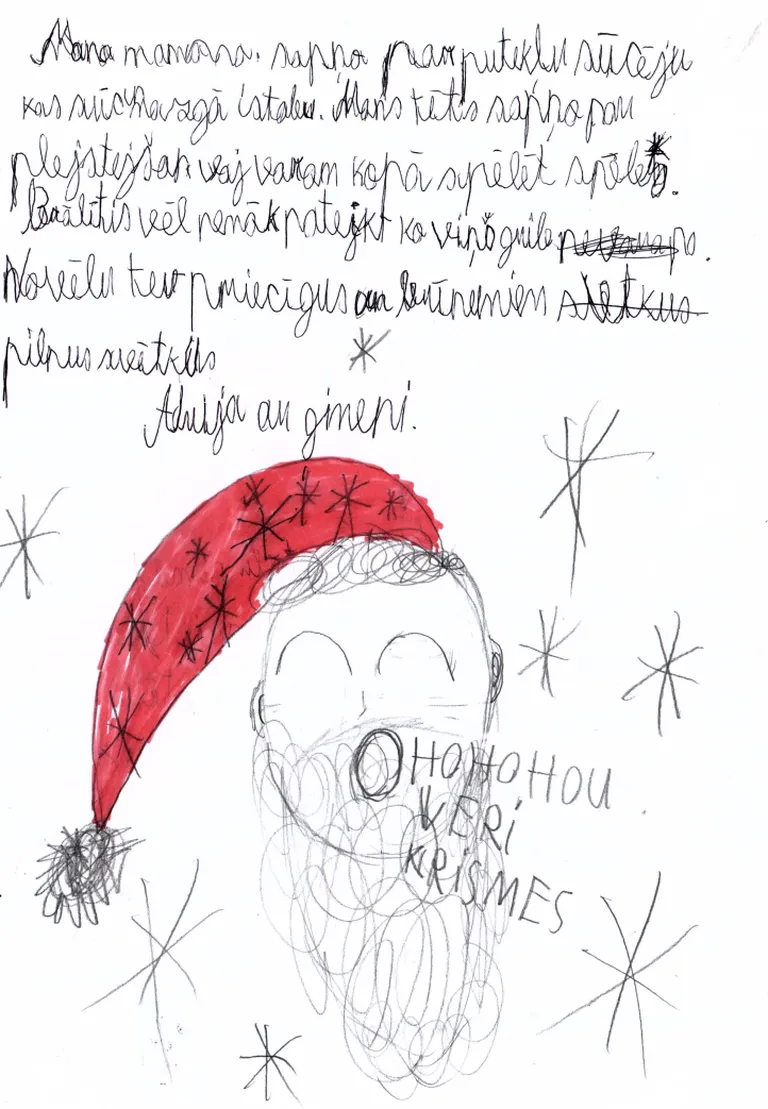 Mana mamma sapņo par putekļu sūcēju
kas sūc mazgā istabu. Mans tētis sapņo par
plejstejšan vaj varam kopā spēlēt spēles.
Brālītis vēl nemāk patejkt ko viņš grib.
Novēlu tev priecīgus un brīnumiem svētkus
pilnus svētkus
un ģimeni.
OHOHOHOU
VERI
KRISMES